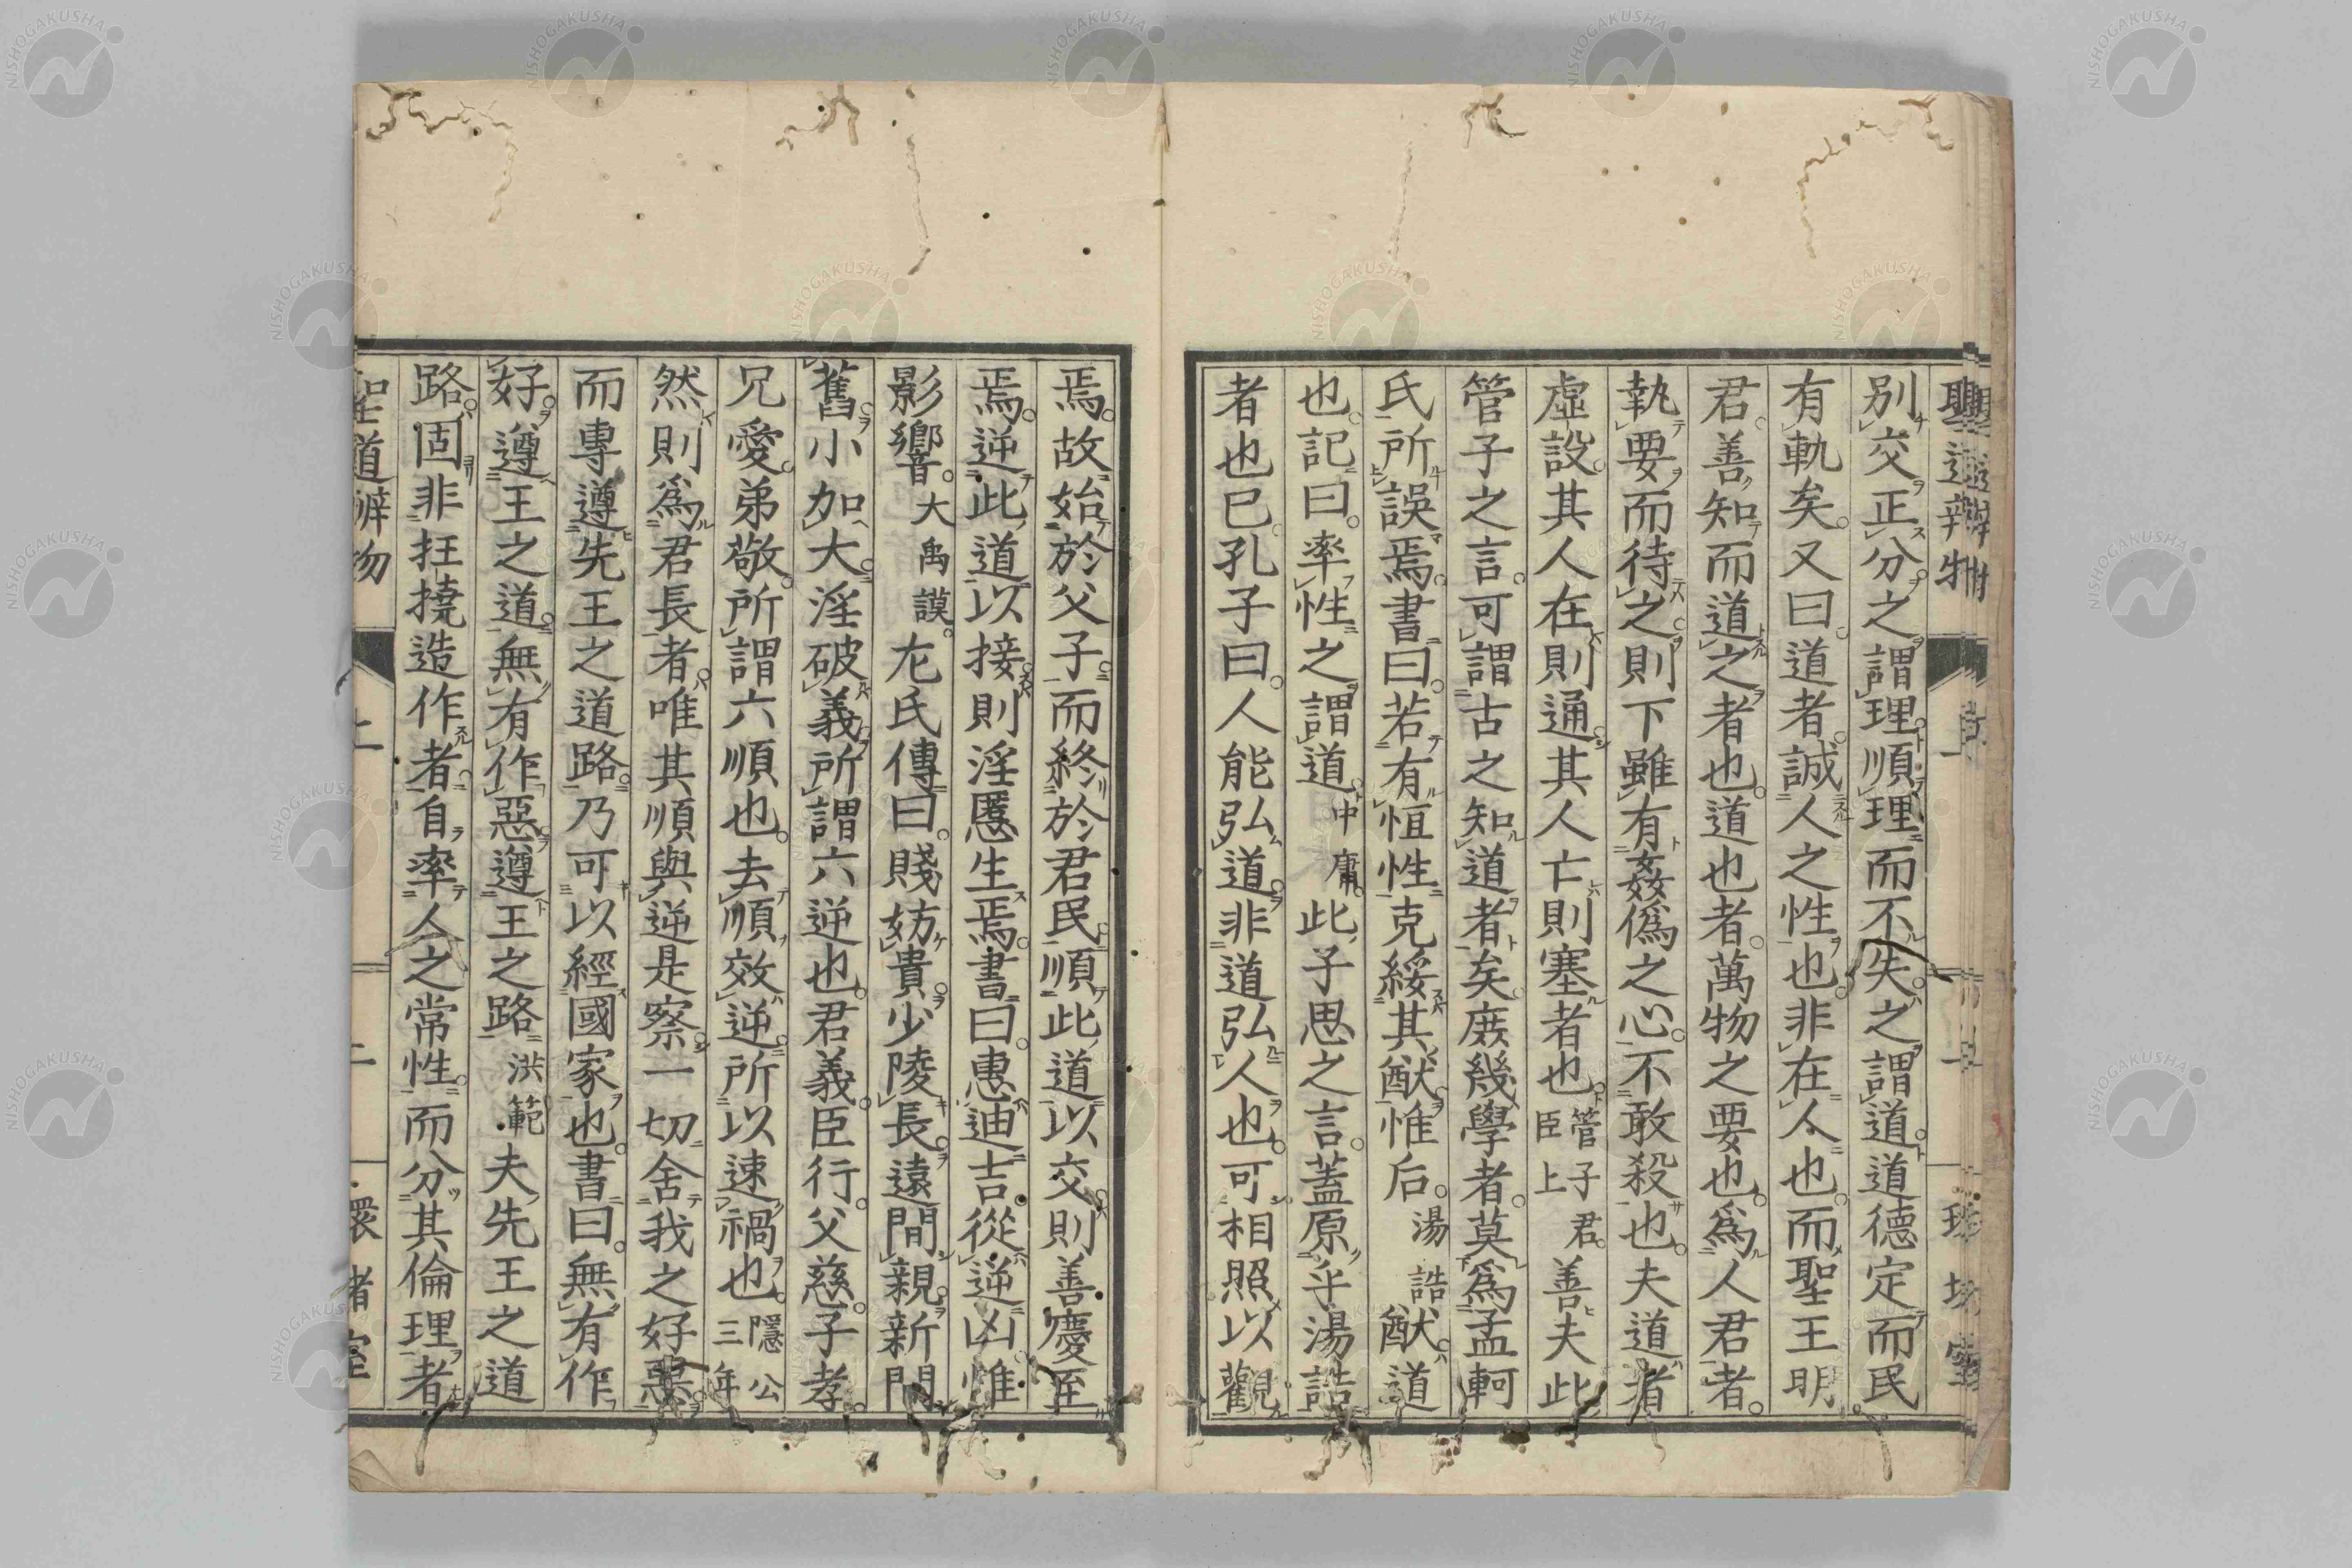 別交正分之謂理順理而不失之謂道道德定而民
有軌矣又曰道者誠人之性也非在人也而聖王明
君善知而道之者也道也者萬物之要也爲人君者
執要而待之則下雖有姦僞之心不敢殺也夫道者
虛設其人在則通其人亡則塞者也管子君臣上善夫此
管子之言可謂古之知道者矣庶幾學者莫爲孟軻
氏所誤焉書曰若有恒性克綏其猷惟后湯誥猷道
也記曰率性之謂道中庸此子思之言蓋原乎湯誥
者也已孔子曰人能弘道非道弘人也可相照以觀
焉故始於父子而終於君民順此道以交則善慶至
焉逆此道以接則淫慝生焉書曰惠迪吉從逆凶惟
影響大禹謨左氏傳曰賤妨貴少陵長遠間親新間
舊小加大淫破義所謂六逆也君義臣行父慈子孝
兄愛弟敬所謂六順也去順效逆所以速禍也隱公三年
然則爲君長者唯其順與逆是察一切舍我之好惡
而專遵先王之道路乃可以經國家也書曰無有作
好遵王之道無有作惡遵王之路洪範夫先王之道
路固非抂撓造作者自率人之常性而分其倫理者
聖道辨物
上
二
環堵室